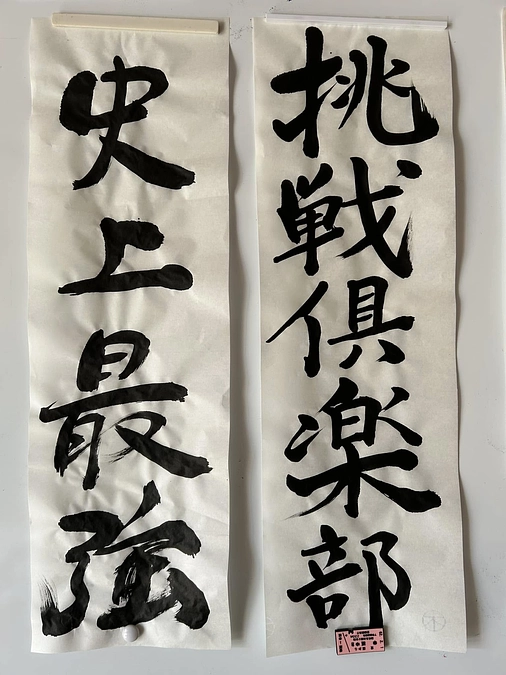 挑戦倶楽部
史上最強